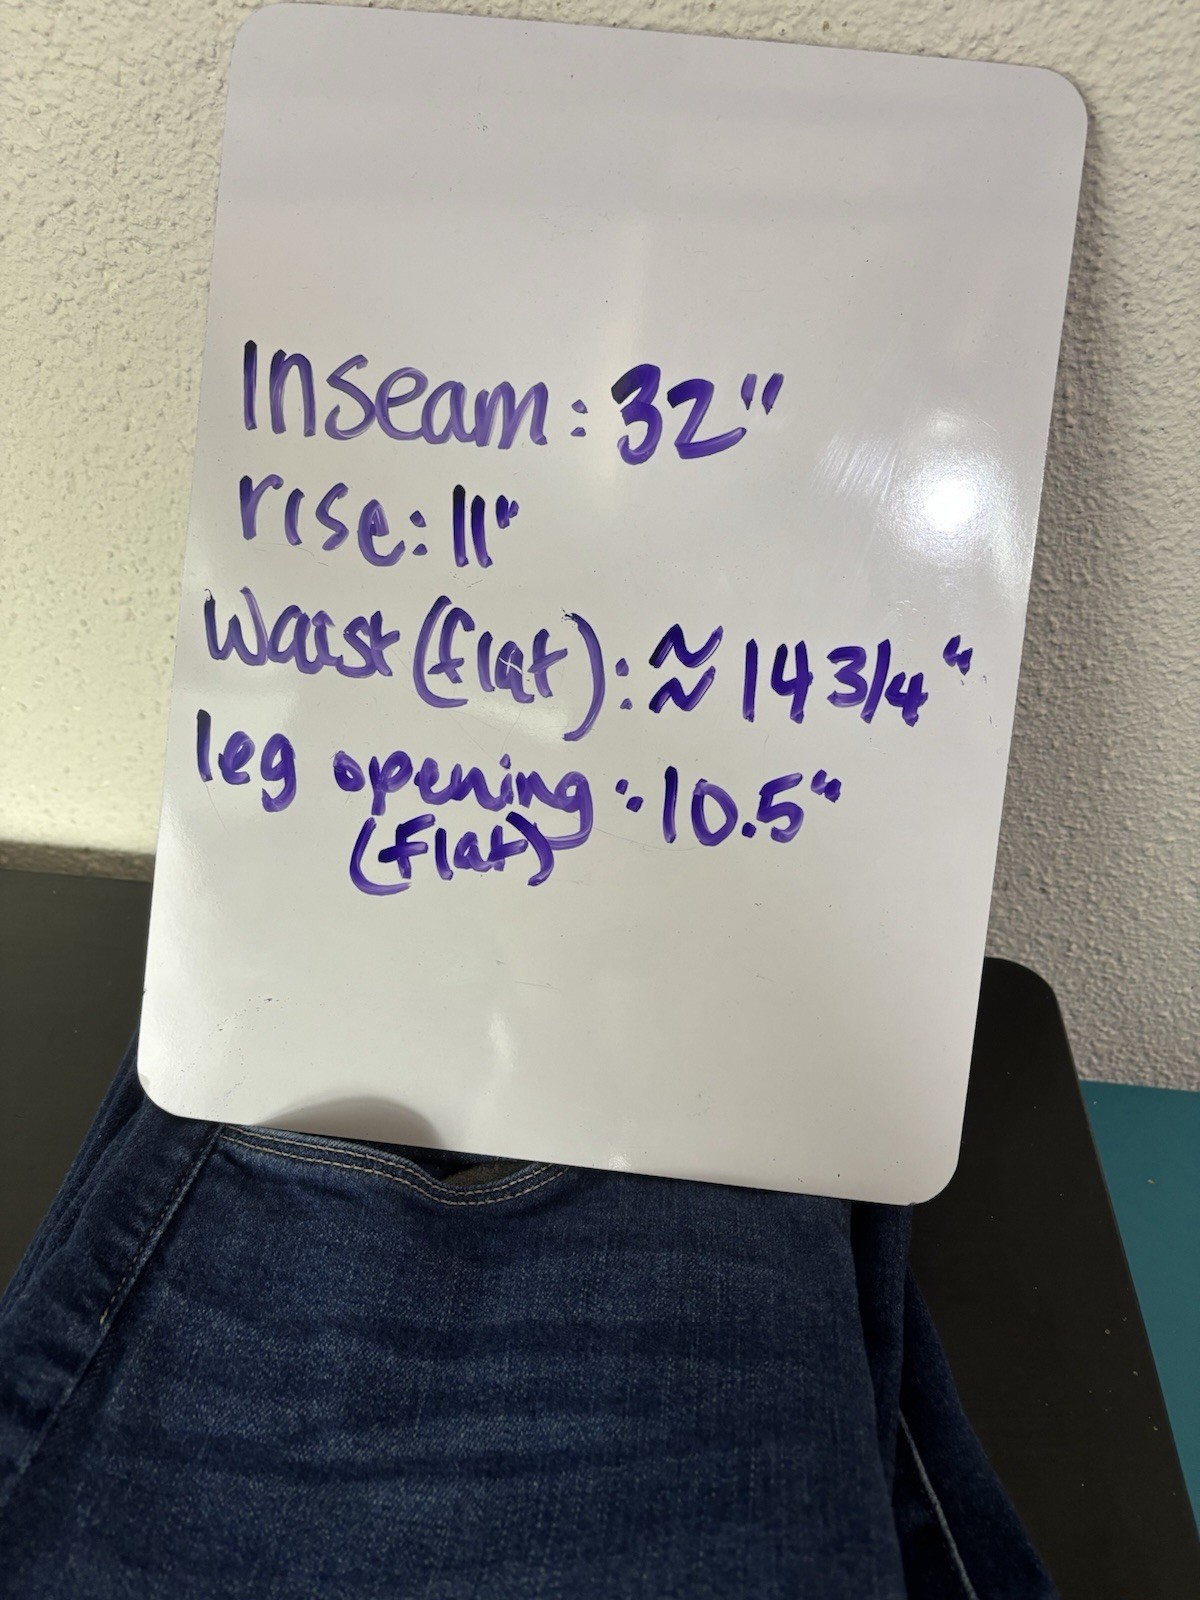 Inseam: 32"
rise: 11"
Waist (flat): ≈ 14 3/4"
leg opening: 10.5"
(flat)